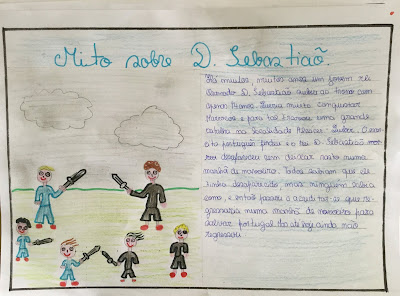 Mito sobre D. Sebastião.
Há muitos, muitos anos um jovem rei
chamado D. Sebastião subiu ao trono com
apenas 14 anos. Queria muito conquistar
Marrocos e para tal travou uma grande
batalha na localidade Alcácer-Quibir. O exér-
cito português perdeu e o rei D. Sebastião
desapareceu sem deixar rasto numa
manhã de nevoeiro. Todos sabiam que ele
tinha desaparecido mas ninguém sabia
como, e então passou a acreditar-se que re-
gressaria numa manhã de nevoeiro para
salvar Portugal. Mas até hoje ainda não
regressou